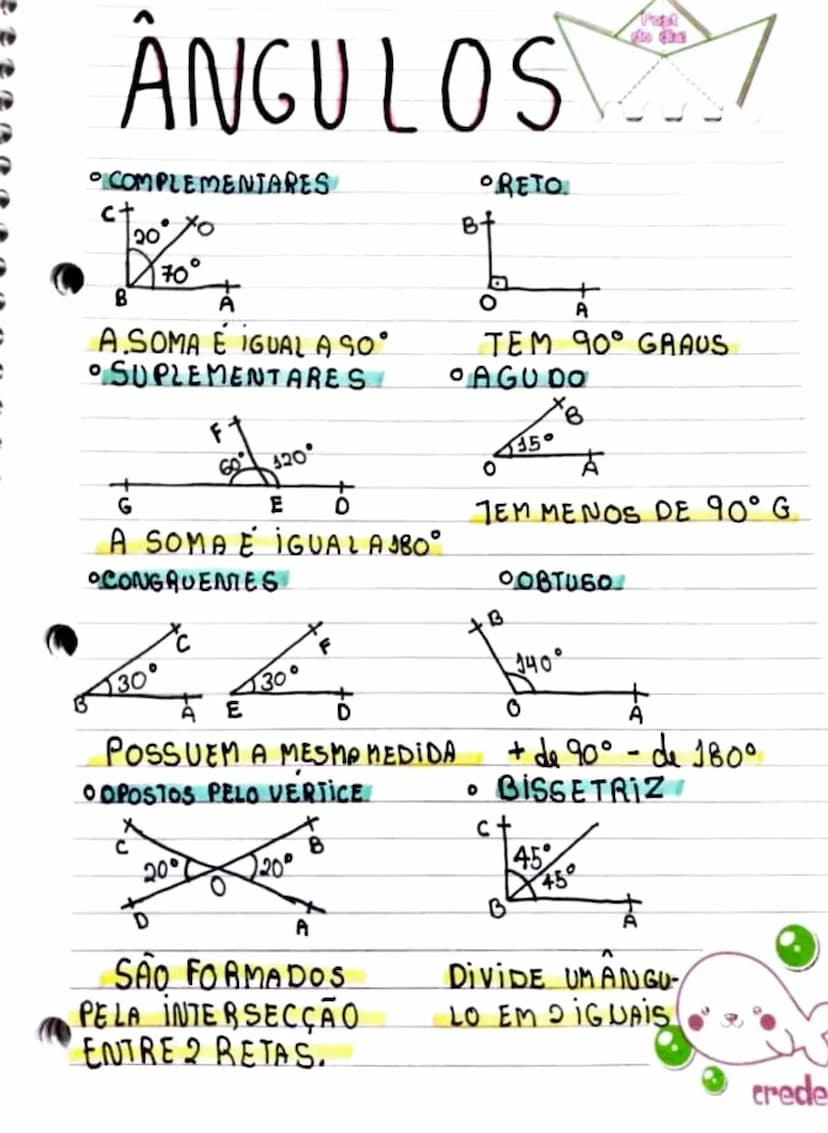 Papt
do dia
ÂNGULOS
COMPLEMENTARES
C
20°
O
70°
B
A
A SOMA É IGUAL A 90°
RETO
B
O
A
TEM 90° GRAUS
SUPLEMENTARES
F
60°
120°
G
E
D
A SOMA É IGUAL A 180°
AGUDO
B
15°
O
A
TEM MENOS DE 90° G
CONGRUENTES
C
30°
B
A
F
30°
E
D
POSSUEM A MESMA MEDIDA
OBTUSO
B
140°
O
A
+ de 90° - de 180°
OPOSTOS PELO VÉRTICE
C
B
20°
20°
O
D
A
SÃO FORMADOS
PELA INTERSECÇÃO
ENTRE 2 RETAS.
BISSETRIZ
C
45°
45°
B
A
DIVIDE UM ÂNGU-
LO EM 2 IGUAIS
crede